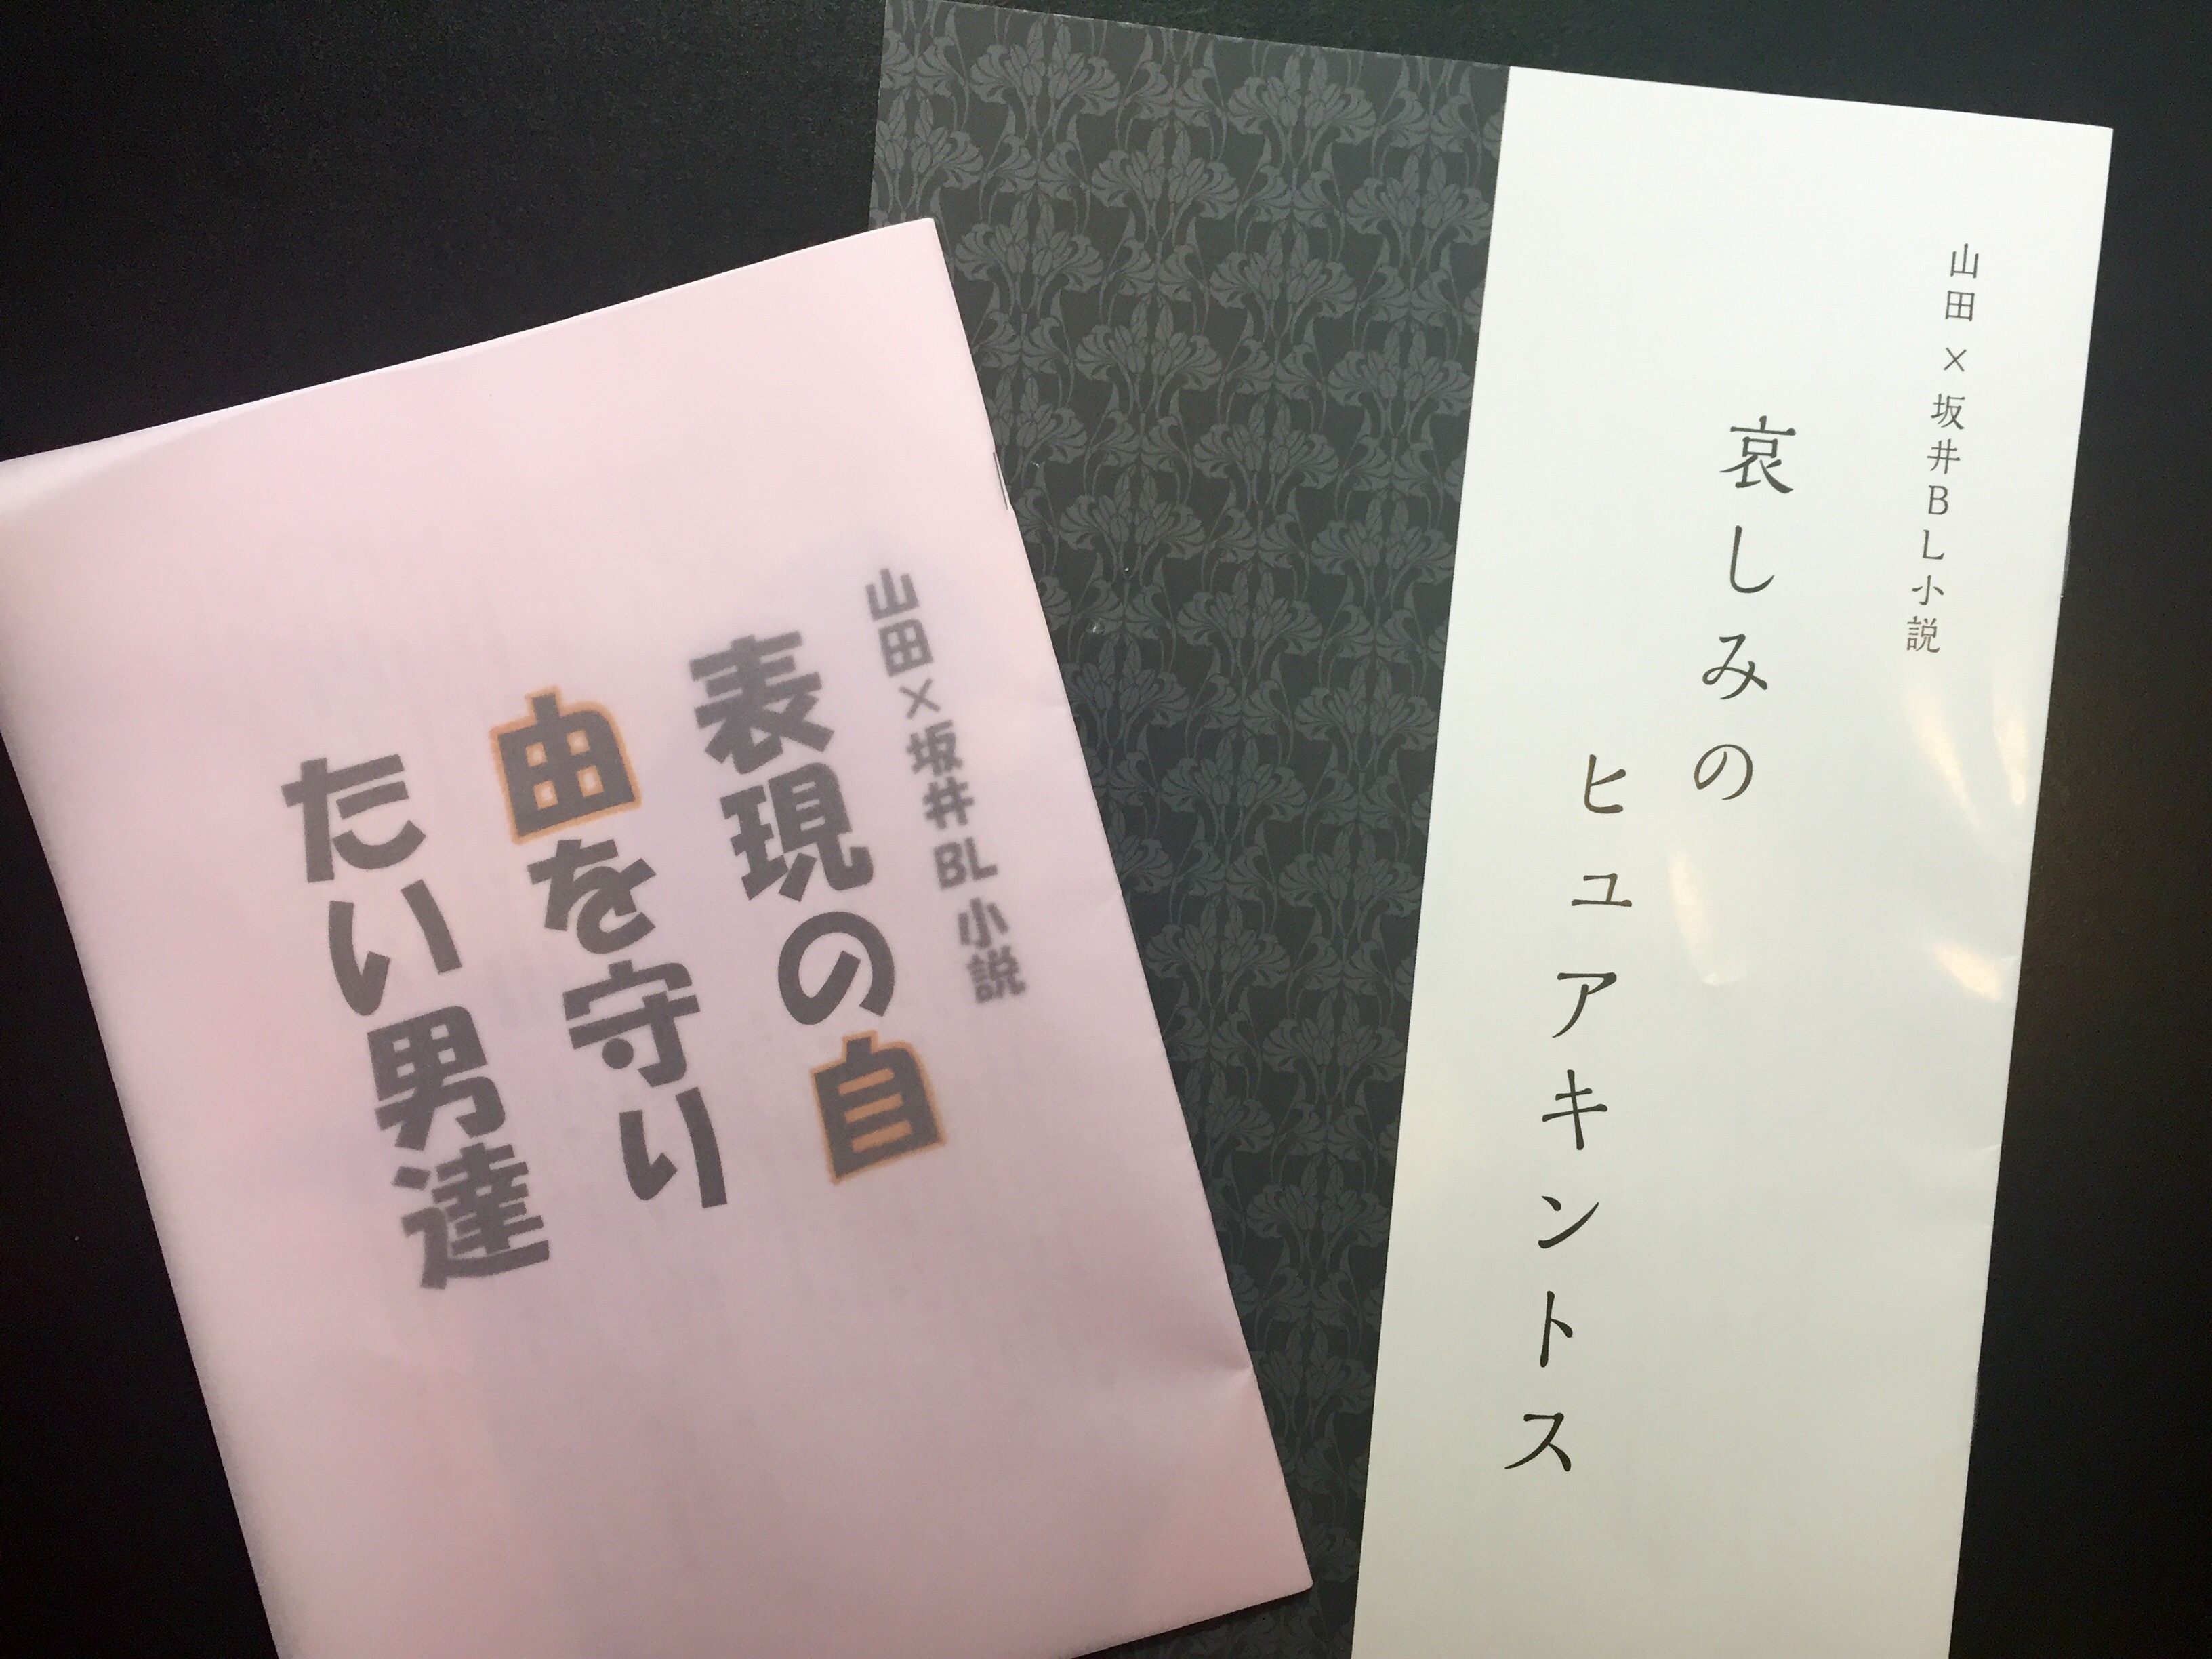 山田×坂井BL小説
哀しみの
ヒュアキントス
山田×坂井BL小説
表現の自
由を守り
たい男達